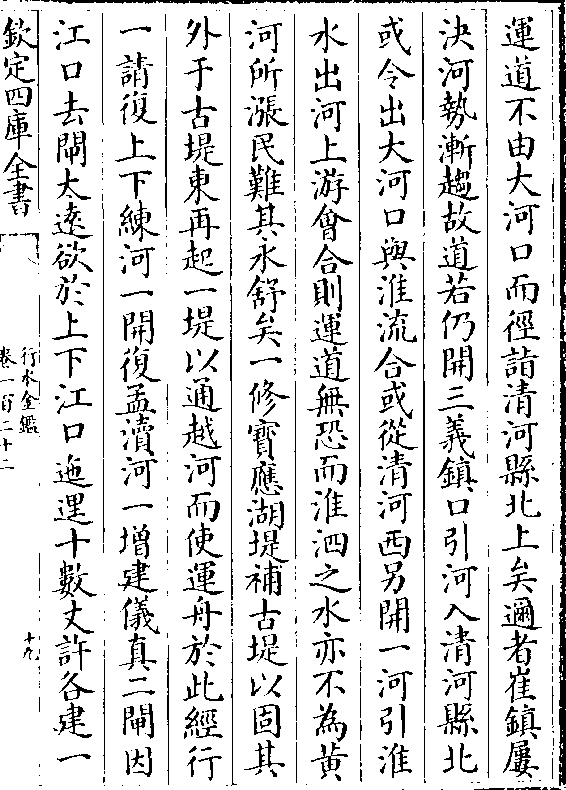 運道不由大河口而徑詣清河縣北上矣邇者崔鎮屢
決河勢漸趨故道若仍開三義鎮口引河入清河縣北
或令出大河口與淮流合或從清河西另開一河引淮
水出河上游㑹合則運道無恐而淮泗之水亦不為黄
河所漲民難其水舒矣一修寶應湖堤補古堤以固其
外于古堤東再起一堤以通越河而使運舟於此經行
一請復上下練河一開復孟瀆河一增建儀真二閘因
江口去閘太逺欲於上下江口迤運十數丈許各建一
欽定四庫全書
行水金鑑
卷一百二十二
十九